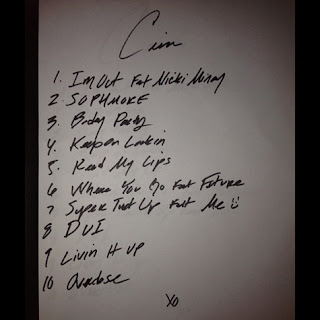 Ciara
1. I'm Out Fet Nicki Minaj
2 SOPHMORE
3. Body Party
4. Keep on Lookin
5. Read My Lips
6 Where You Go Feat Future
7 Super Turt Up Feat Me
8 DUI
9 Livin It up
10 Overdose
XO